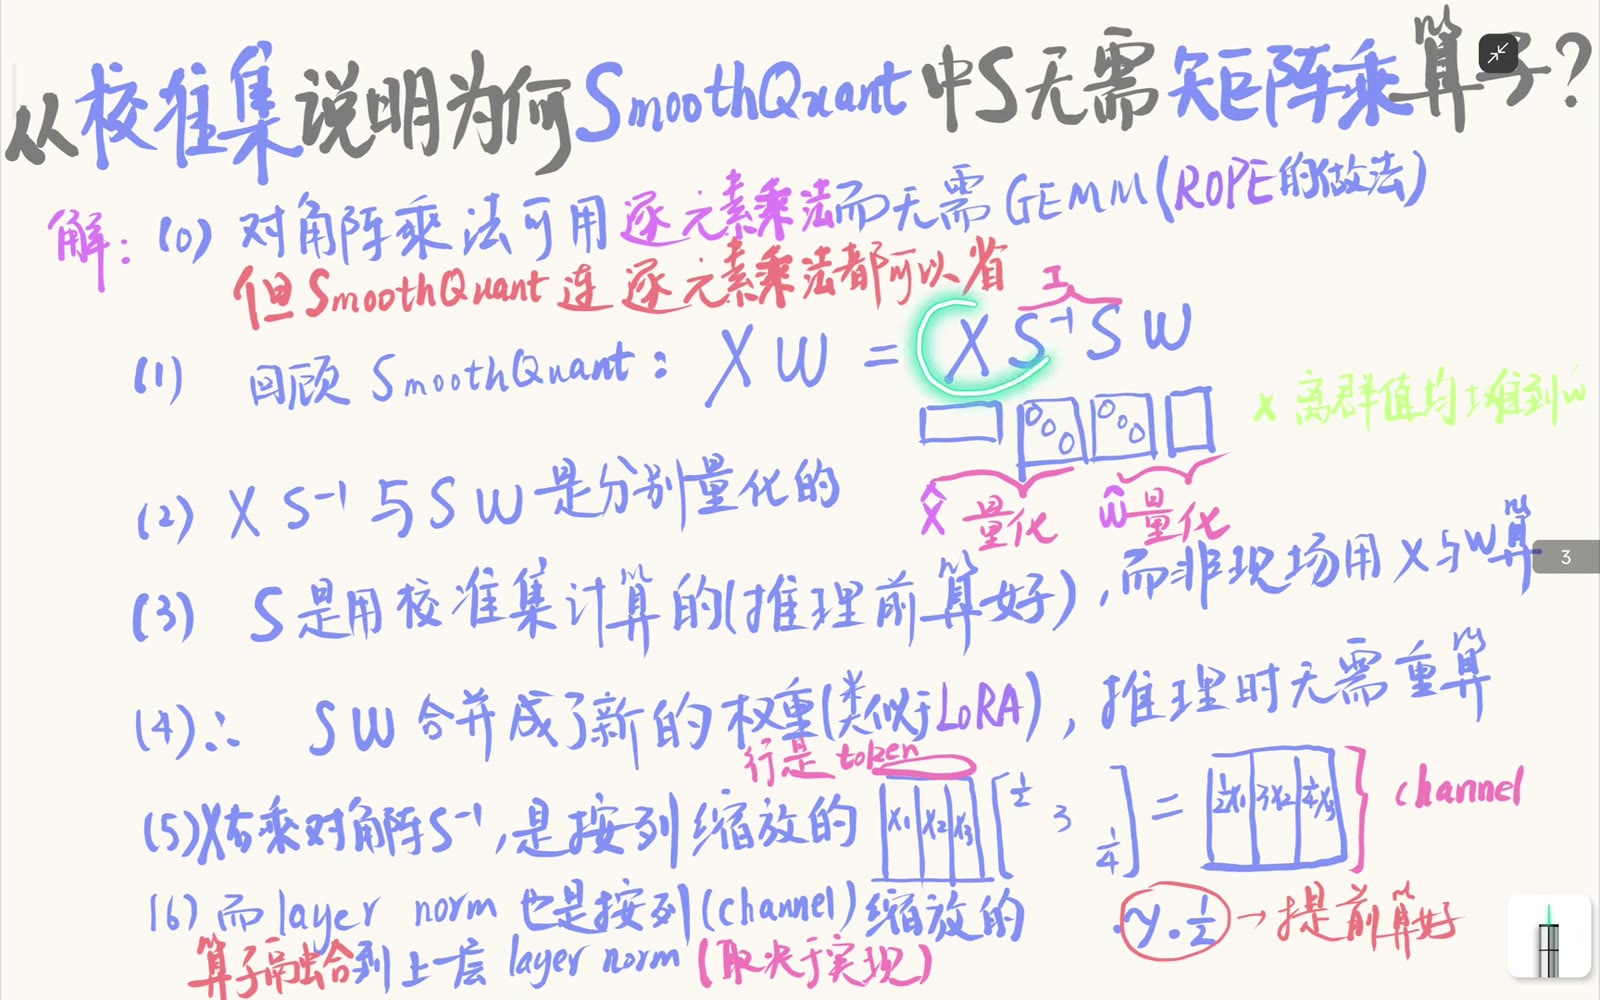 从校准集说明为何SmoothQuant中S无需矩阵乘算子?
解: (0) 对角阵乘法可用逐元素乘法而无需GEMM(ROPE的做法)
但SmoothQuant连逐元素乘法都可以省
I
(1) 回顾 SmoothQuant: XW = X S⁻¹ S W
X 离群值均摊到W
X̂ 量化 Ŵ 量化
(2) X S⁻¹ 与 S W 是分别量化的
(3) S是用校准集计算的(推理前算好),而非现场用X与W算
3
(4)∴ SW合并成了新的权重(类似于LoRA),推理时无需重算
行是token
(5)X右乘对角阵S⁻¹,是按列缩放的 X₁ X₂ X₃ [1/2 3 1/4] = 1/2X₁ 3X₂ 1/4X₃ channel
(6)而layer norm 也是按列(channel)缩放的 .γ.1/2 → 提前算好
算子融合到上一层 layer norm (取决于实现)